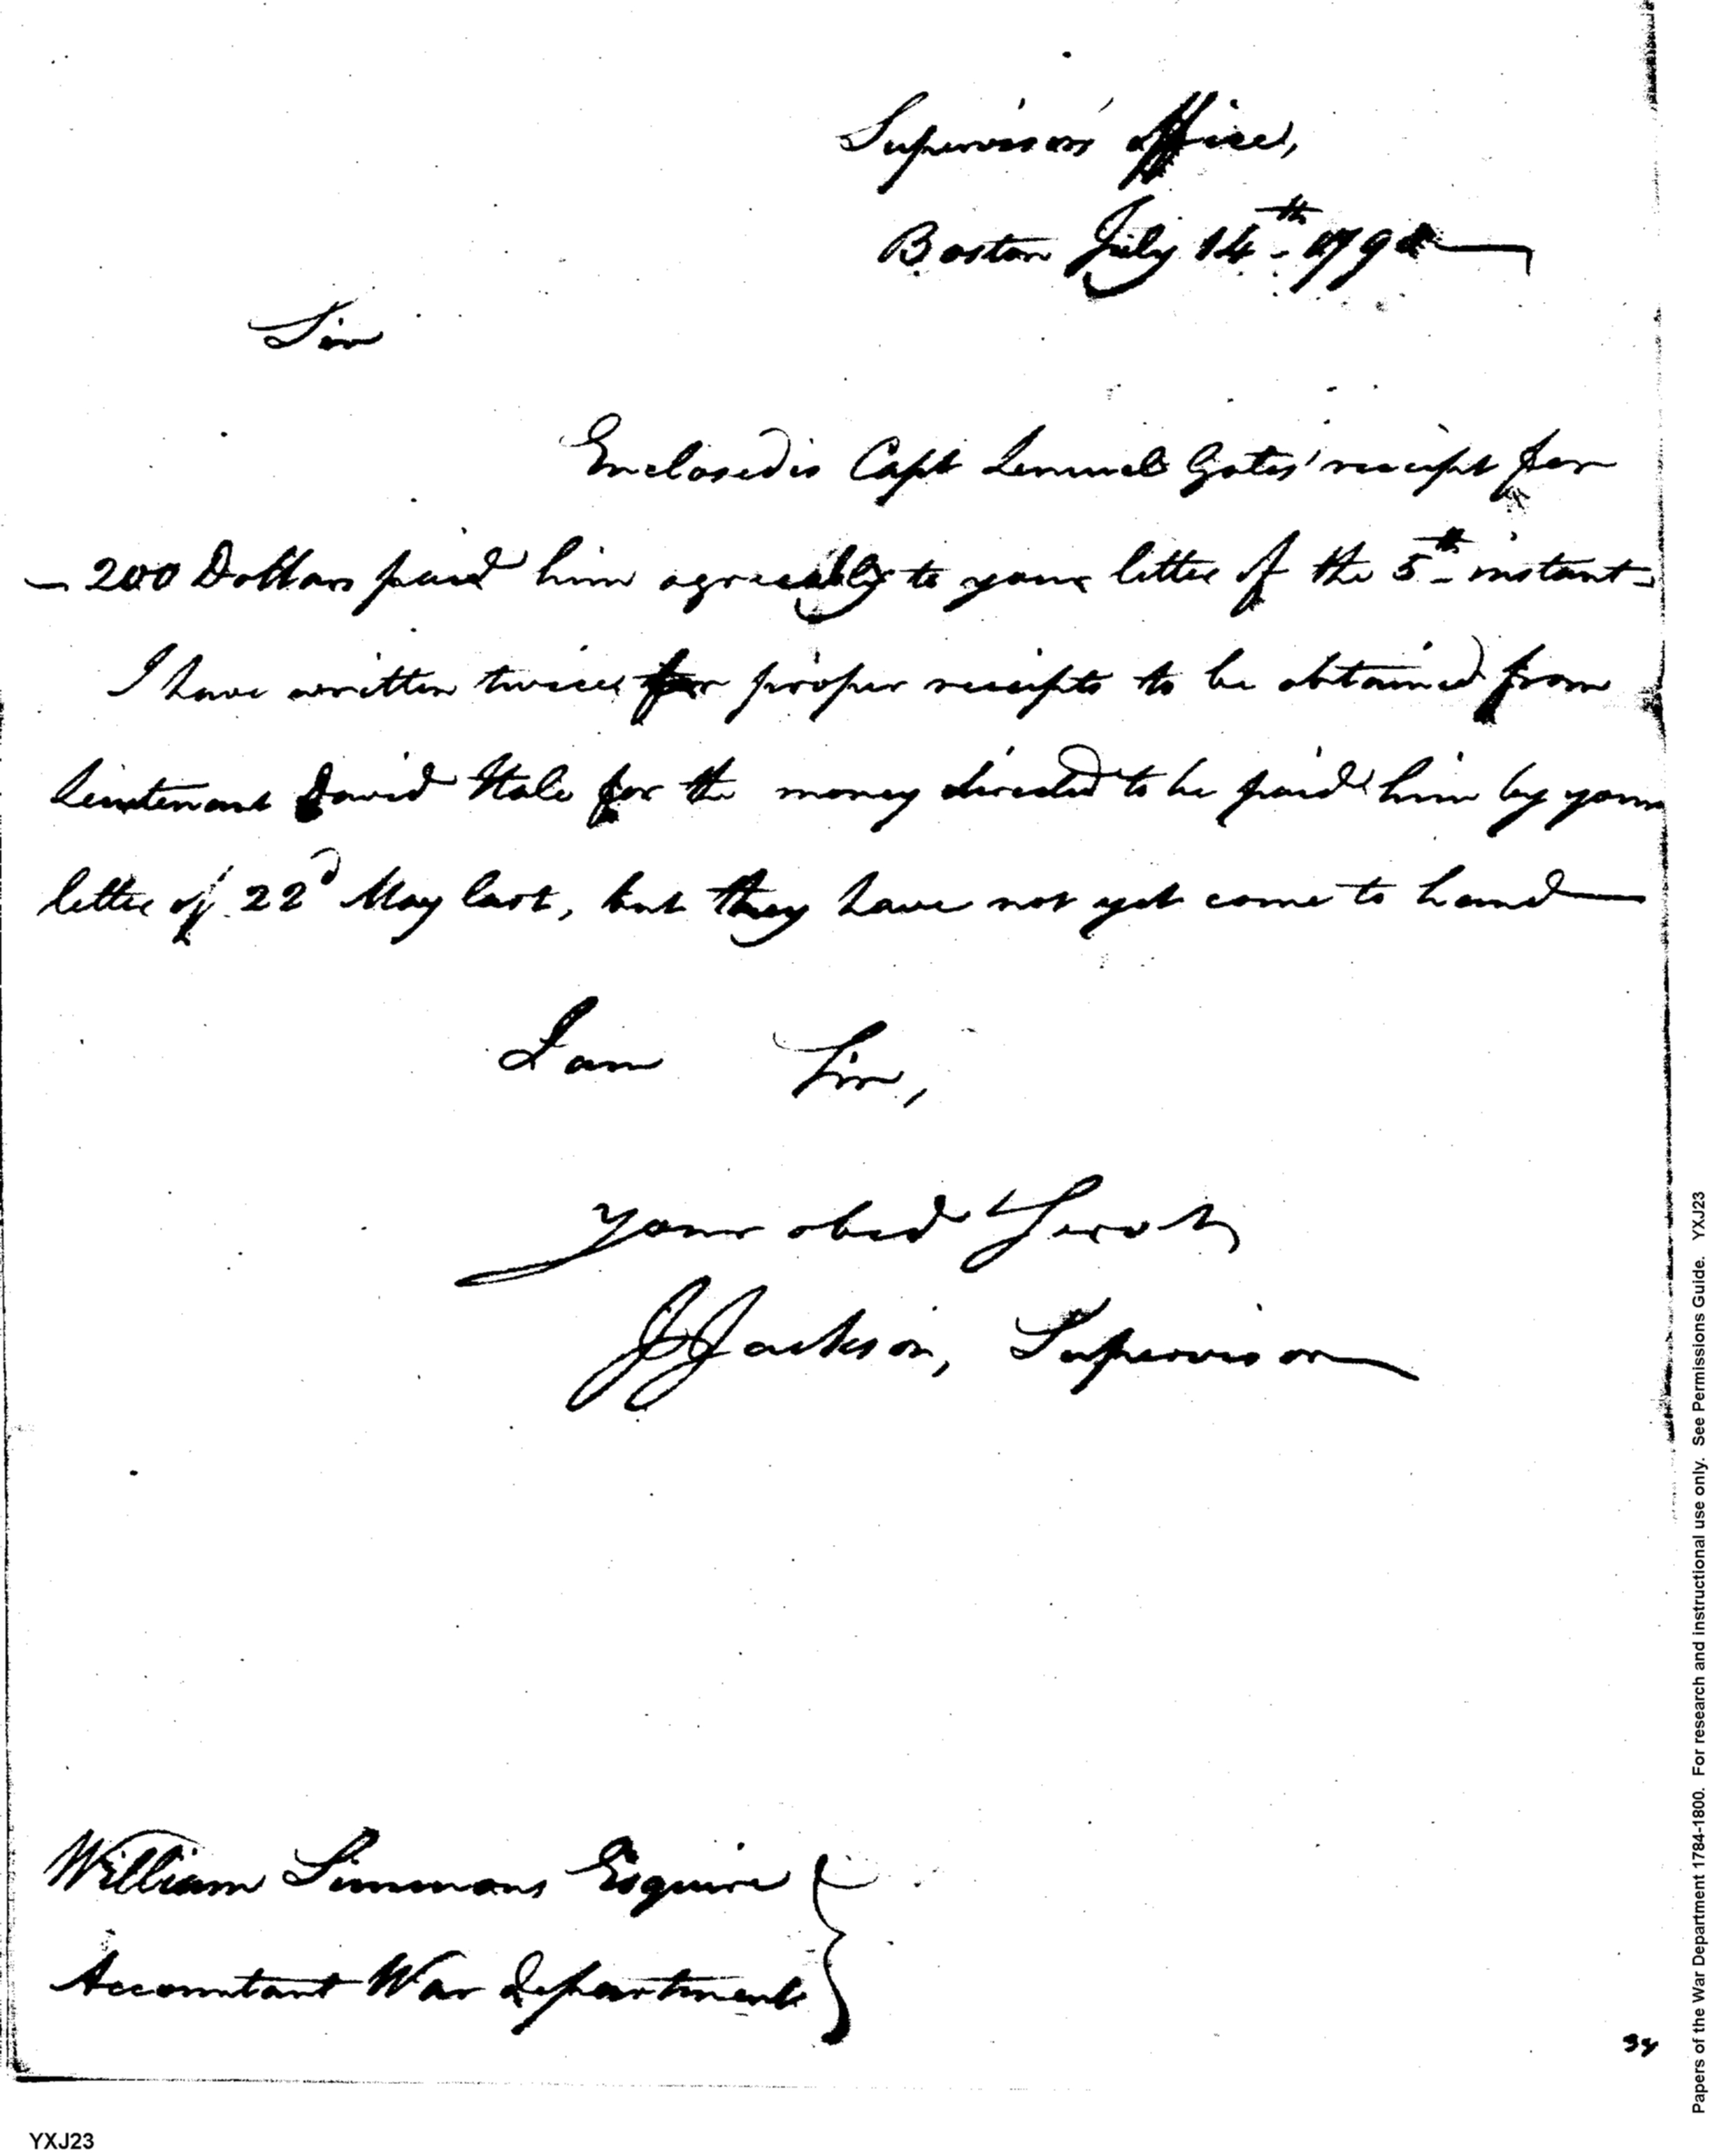 Supervisors office,
Boston July 14th 179
Sir
Enclosed is Capt Lemuel Gates' receipt for
— 200 Dollars paid him agreeably to your letter of the 5th instant —
I have written twice for proper receipts to be obtained from
lieutenant David Hale for the money directed to be paid him by your
letter of 22d May last, but they have not yet come to hand —
I am Sir,
Your obed Servt
J Jackson, Supervisor
William Simmons Esquire
Accountant War department
34
YXJ23
Papers of the War Department 1784-1800. For research and instructional use only. See Permissions Guide. YXJ23